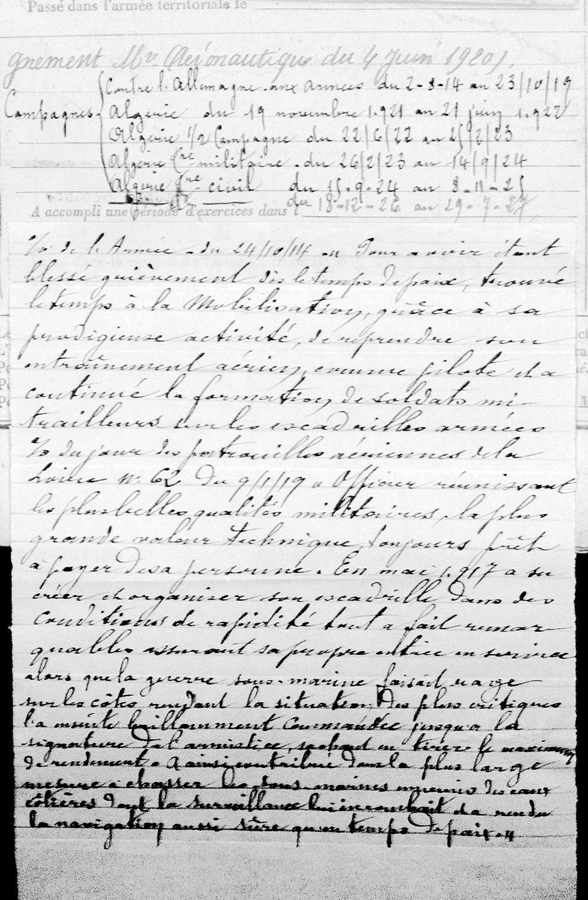 Passé dans l'armée territoriale le
gnement Mre Aéronautique du 4 Juin 1920).
Campagnes
Contre l'Allemagne aux armées du 2-8-14 au 23/10/19
Algérie du 19 novembre 1.921 au 21 juin 1.922
Algérie 1/2 Campagne du 22/6/22 au 25/2/23
Algérie tre militaire - du 26/2/23 au 14/9/24
Algérie tre civil du 15-9-24 au 8-11-25
du 18-12-26 au 29-7-27,
A accompli une période d'exercices dans l
% de l'Armée - du 24/10/14 - " Pour avoir étant
blessé grièvement dès le temps de paix, trouvé
le temps à la Mobilisation, grâce à sa
prodigieuse activité, de reprendre son
entraînement aérien, comme pilote et a
continué la formation, de soldats mi-
trailleurs sur les escadrilles armées
% du jour des patrouilles aériennes de la
Loire N° 62 Du 9/1/19 " Officier réunissant
les plus belles qualités militaires, la plus
grande valeur technique, toujours prêt
à payer de sa personne. En mai 1.917 a su
créer et organiser son escadrille dans des
conditions de rapidité tout à fait remar
quables assurant sa propre entrée en service
alors que la guerre sous-marine faisait rage
sur les côtes rendant la situation des plus critiques
l'a ensuite brillamment commandée jusqu'à la
signature de l'armistice, sachant en tirer le maximum
de rendement. A ainsi contribué dans la plus large
mesure à chasser les sous-marins ennemis des eaux
côtières dont la surveillance lui incombait et a rendu
la navigation aussi sûre qu'en temps de paix. "